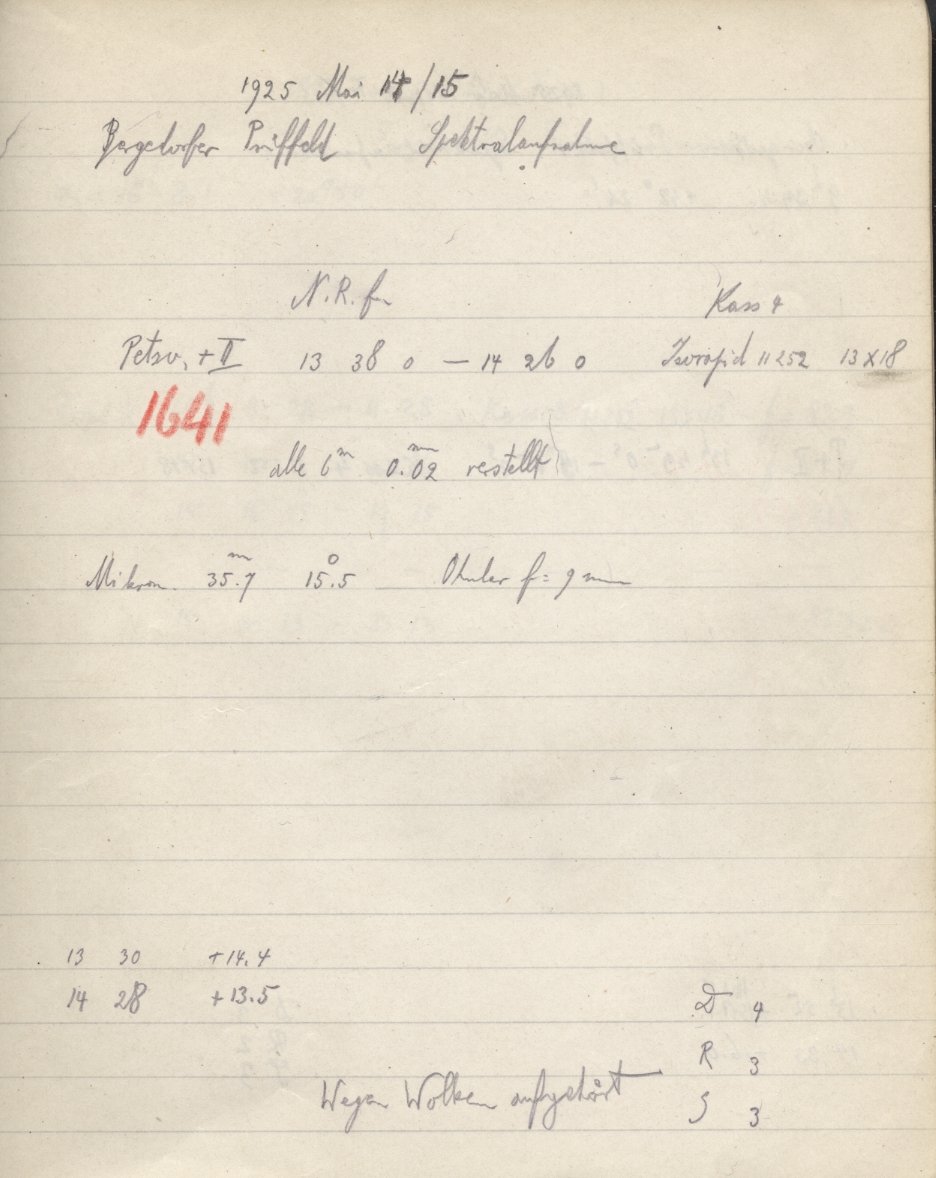 1925 Mai 14/15
Bergedorfer Prüffeld Spektralaufnahme
N.R. f.
Kass 4
Petzv, + II 13 38 0 — 14 26 0 Isorapid 11252 13X18
1641
alle 6m 0.02 mm verstellt
Mikrom. 35.7 mm 15.5° Okular f = 9 mm
13 30 +14.4
14 28 +13.5
D 4
R 3
Wegen Wolken aufgehört
S 3